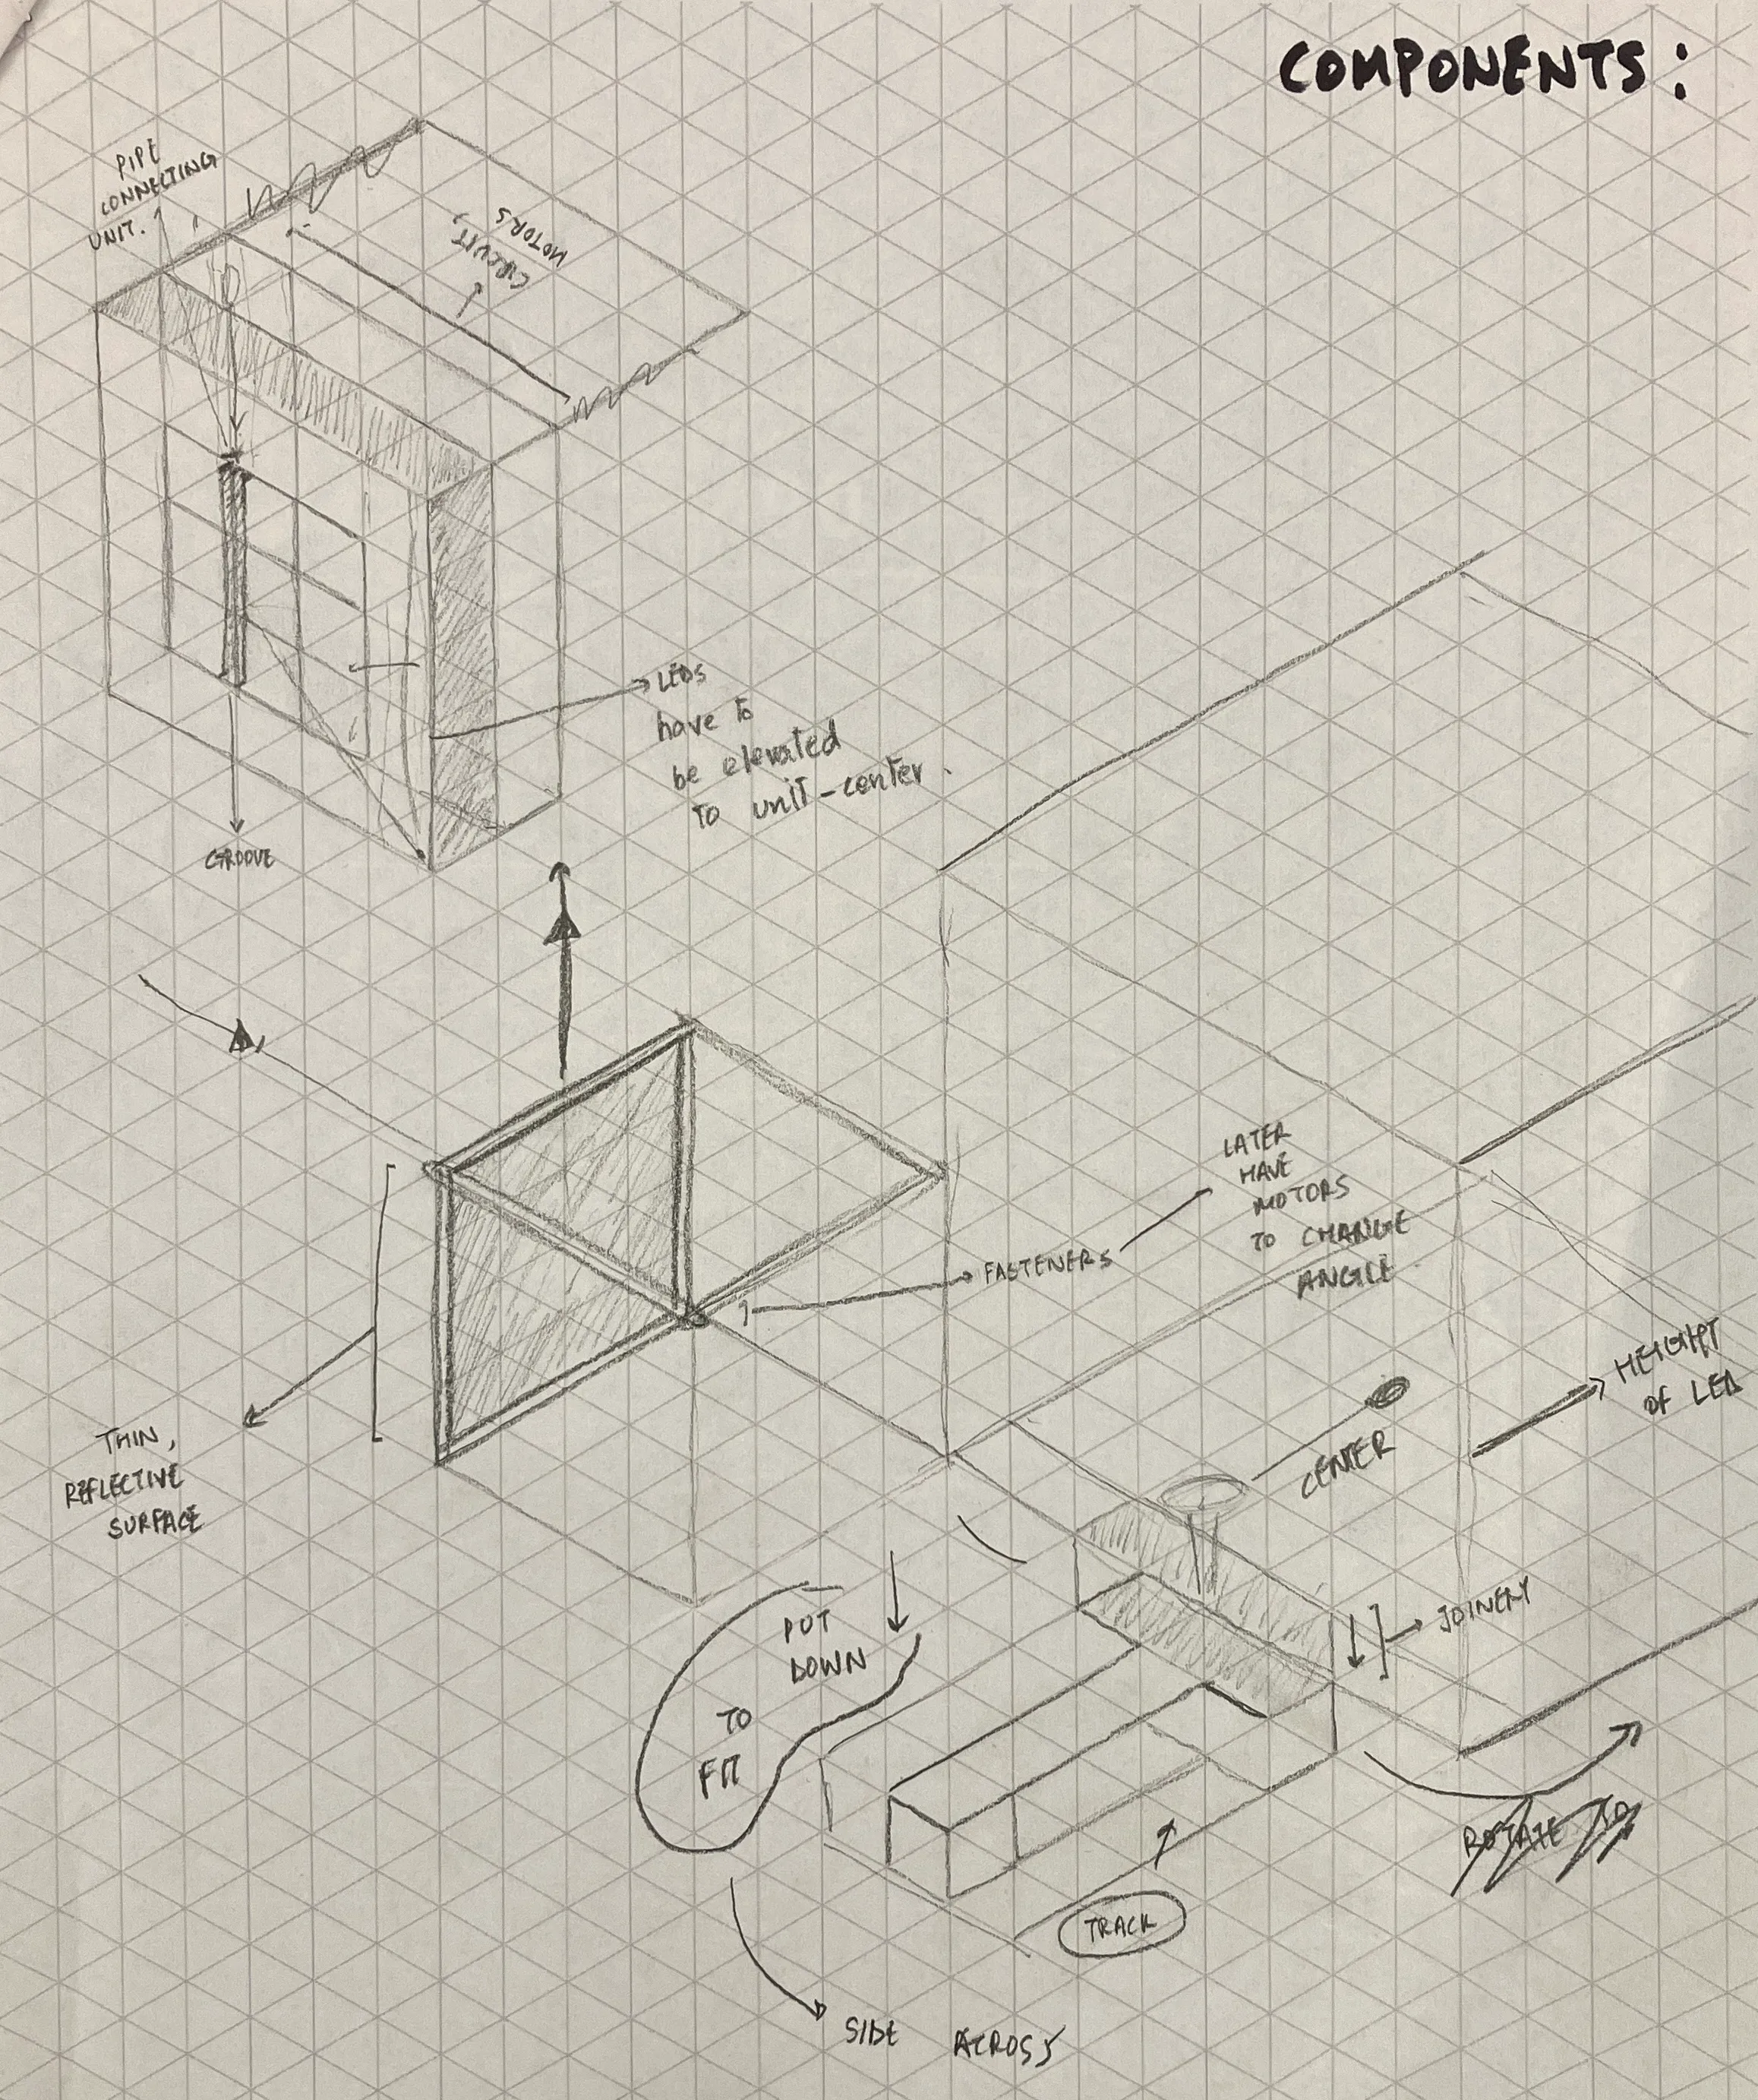 COMPONENTS:
PIPE
CONNECTING
UNIT.
CIRCUIT,
MOTORS
LEDS
have to
be elevated
to unit-center.
GROOVE
LATER
HAVE
MOTORS
TO CHANGE
ANGLE
FASTENERS
HEIGHT
OF LED
CENTER
THIN,
REFLECTIVE
SURFACE
JOINERY
PUT
DOWN
TO
FIT
ROTATE TO
TRACK
SIDE ACROSS